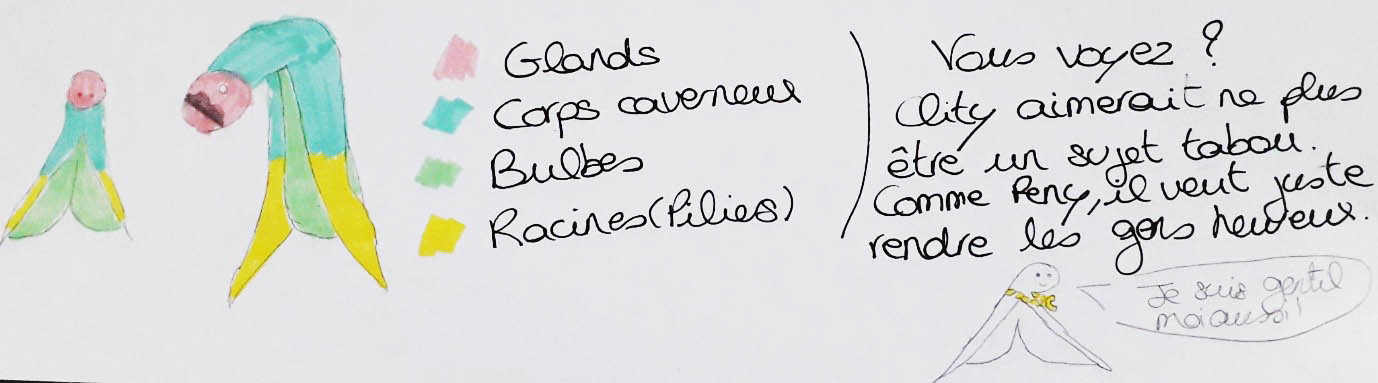 Glands
Corps caverneux
Bulbes
Racines (Piliers)
Vous voyez ?
Clity aimerait ne plus
être un sujet tabou.
Comme Peny, il veut juste
rendre les gens heureux.
Je suis gentil
moi aussi !